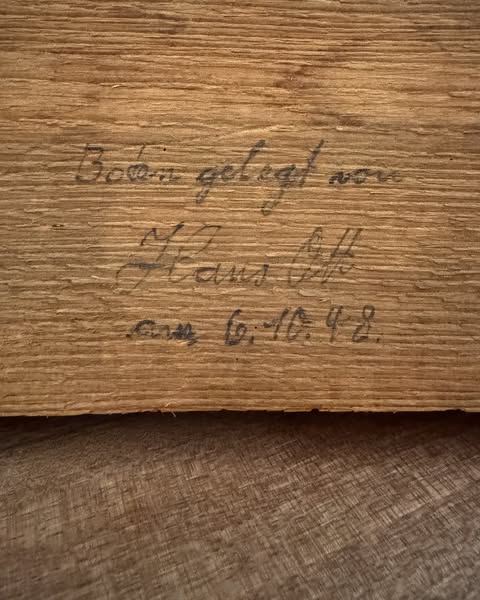 Boden gelegt von
Hans Ott
am 6.10.48.